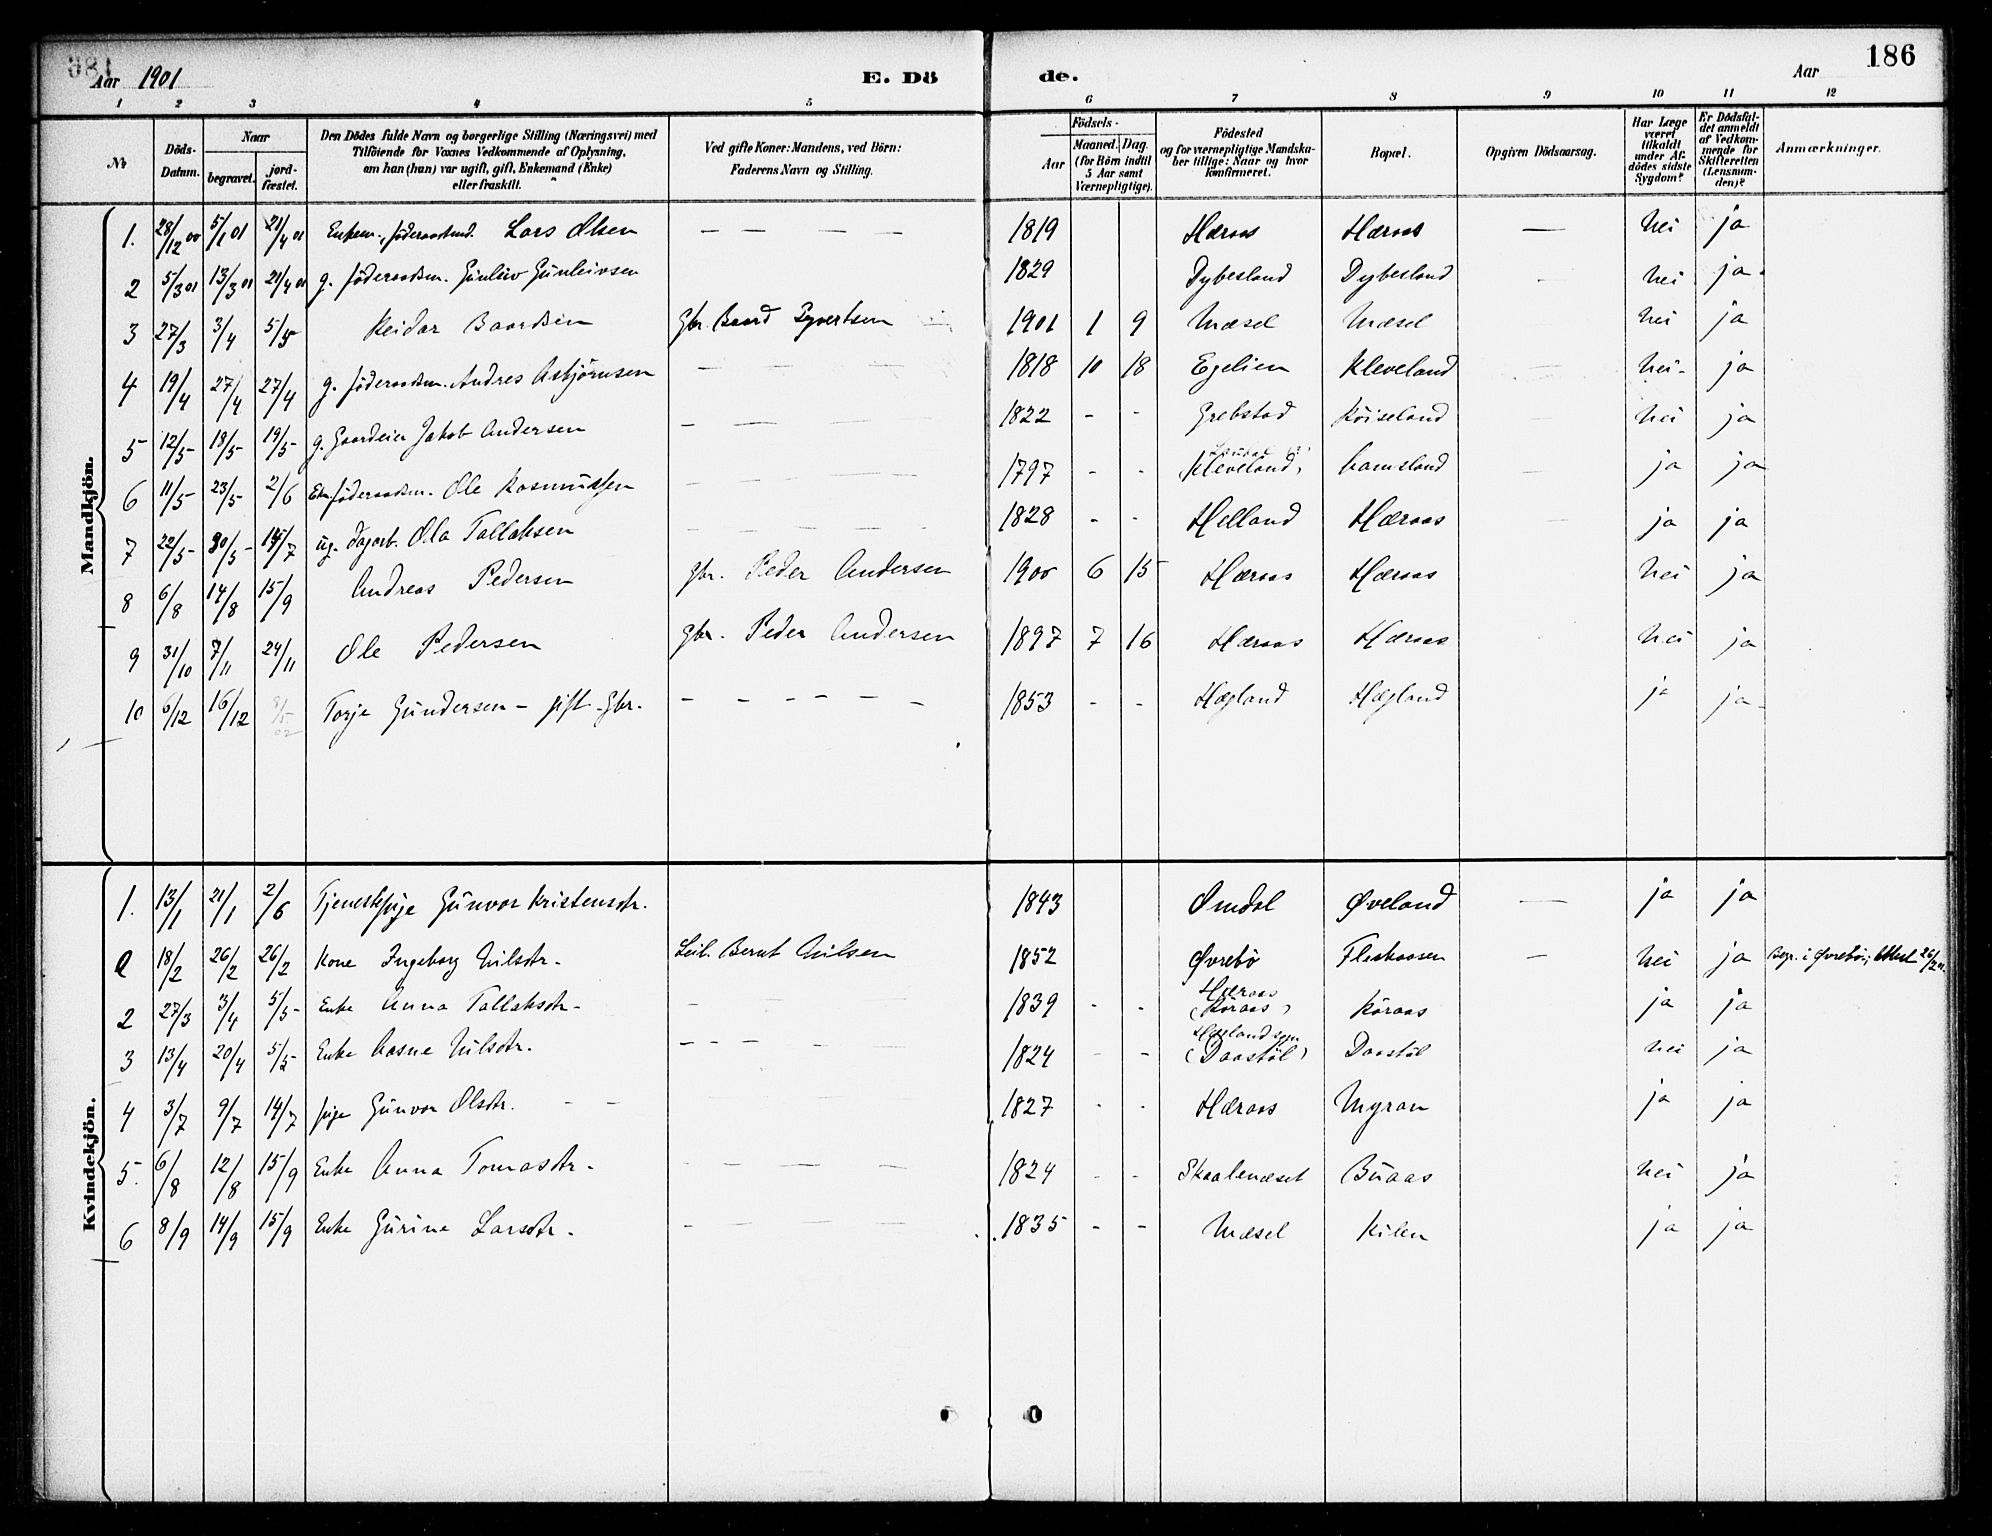 Aar 1901 E. Dö de. Aar 186
1 2 3 4 5 6 7 8 9 10 11 12
№ Döds-Datum. Naar begravet. jordfæstet. Den Dödes fulde Navn og borgerlige Stilling (Næringsvei) med Tilföiende for Voxnes Vedkommende af Oplysning, om han (hun) var ugift, gift, Enkemand (Enke) eller fraskilt. Ved gifte Koner: Mandens, ved Börn: Faderens Navn og Stilling. Födsels- Aar Maaned. Dag. (for Börn indtil 5 Aar samt Værnepligtige). Födested og for værnepligtige Mandskaber tillige: Naar og hvor konfirmeret. Bopæl. Opgiven Dödsaarsag. Har Læge været tilkaldt under Afdödes sidste Sygdom? Er Dödsfaldet anmeldt af Vedkommende for Skifteretten (Lensmanden)? Anmærkninger.
Mandkjön.
1. 28/12 00 5/1 01 21/4 01 Enkem. föderaadsmd. Lars Olsen — — — — 1819 Hæraas Hæraas — nei ja
2 5/3 01 13/3 01 21/4 01 g. föderaadsm. Gunleiv Gunleivsen 1829 Dybesland Dybesland nei ja
3 27/3 3/4 5/5 Reidar Baardsen Gbr. Baard Syvertsen 1901 1 9 Mæsel Mæsel nei ja
4 19/4 27/4 27/4 g. föderaadsm. Andres Asbjörnsen — — — — 1818 10 18 Egelien Kleveland nei ja
5 12/5 18/5 19/5 g. Gaardeier Jakob Andersen — — — — 1822 - - Grebstad Röiseland nei ja
6 11/5 23/5 2/6 Ekm. föderaadsm. Ole Rasmussen — — — — 1797 - - (Kleveland) ja ja
7 22/5 30/5 14/7 ug. dagarb. Ola Tallaksen — — — — 1828 - - Helland Hæraas ja ja
8 6/8 14/8 15/9 Andreas Pedersen gbr. Peder Andersen 1900 6 15 Hæraas Hæraas nei ja
9 31/10 7/11 24/11 Ole Pedersen gbr. Peder Andersen 1897 7 16 Hæraas Hæraas nei ja
10 6/12 16/12 8/5 02 Torje Gundersen - gift - Gbr. — — — — — 1853 - - Hægland Hægland ja ja
Kvindekjön.
1. 13/1 21/1 2/6 Tjenestepige Gunvor Kristensdtr. 1843 Omdal Øveland — ja ja
a 18/2 26/2 26/2 Kone Ingeborg Nilsdtr. Leil. Bernt Nilsen 1852 Øvrebö Fleskaasen — nei ja Begr. i Øvrebö; Attest 26/2 01.
2 27/3 3/4 5/5 Enke Anna Tallaksdtr. — — — 1839 - - Hæraas (Röraas) Röraas ja ja
3 13/4 20/4 5/5 Enke Aasne Nilsdtr. — — — — 1824 - - Hægland sogn (Daastöl) Daastöl nei ja
4 3/7 9/7 14/7 pige Gunvor Olsdtr. — — 1827 - - Hæraas Myran ja ja
5. 6/8 12/8 15/9 Enke Anna Tomasdtr. — — — — 1824 - - Skaalenæset Buaas nei ja
6 8/9 14/9 15/9 Enke Gurine Larsdtr. — — — — 1835 - - Mæsel Kilen ja ja